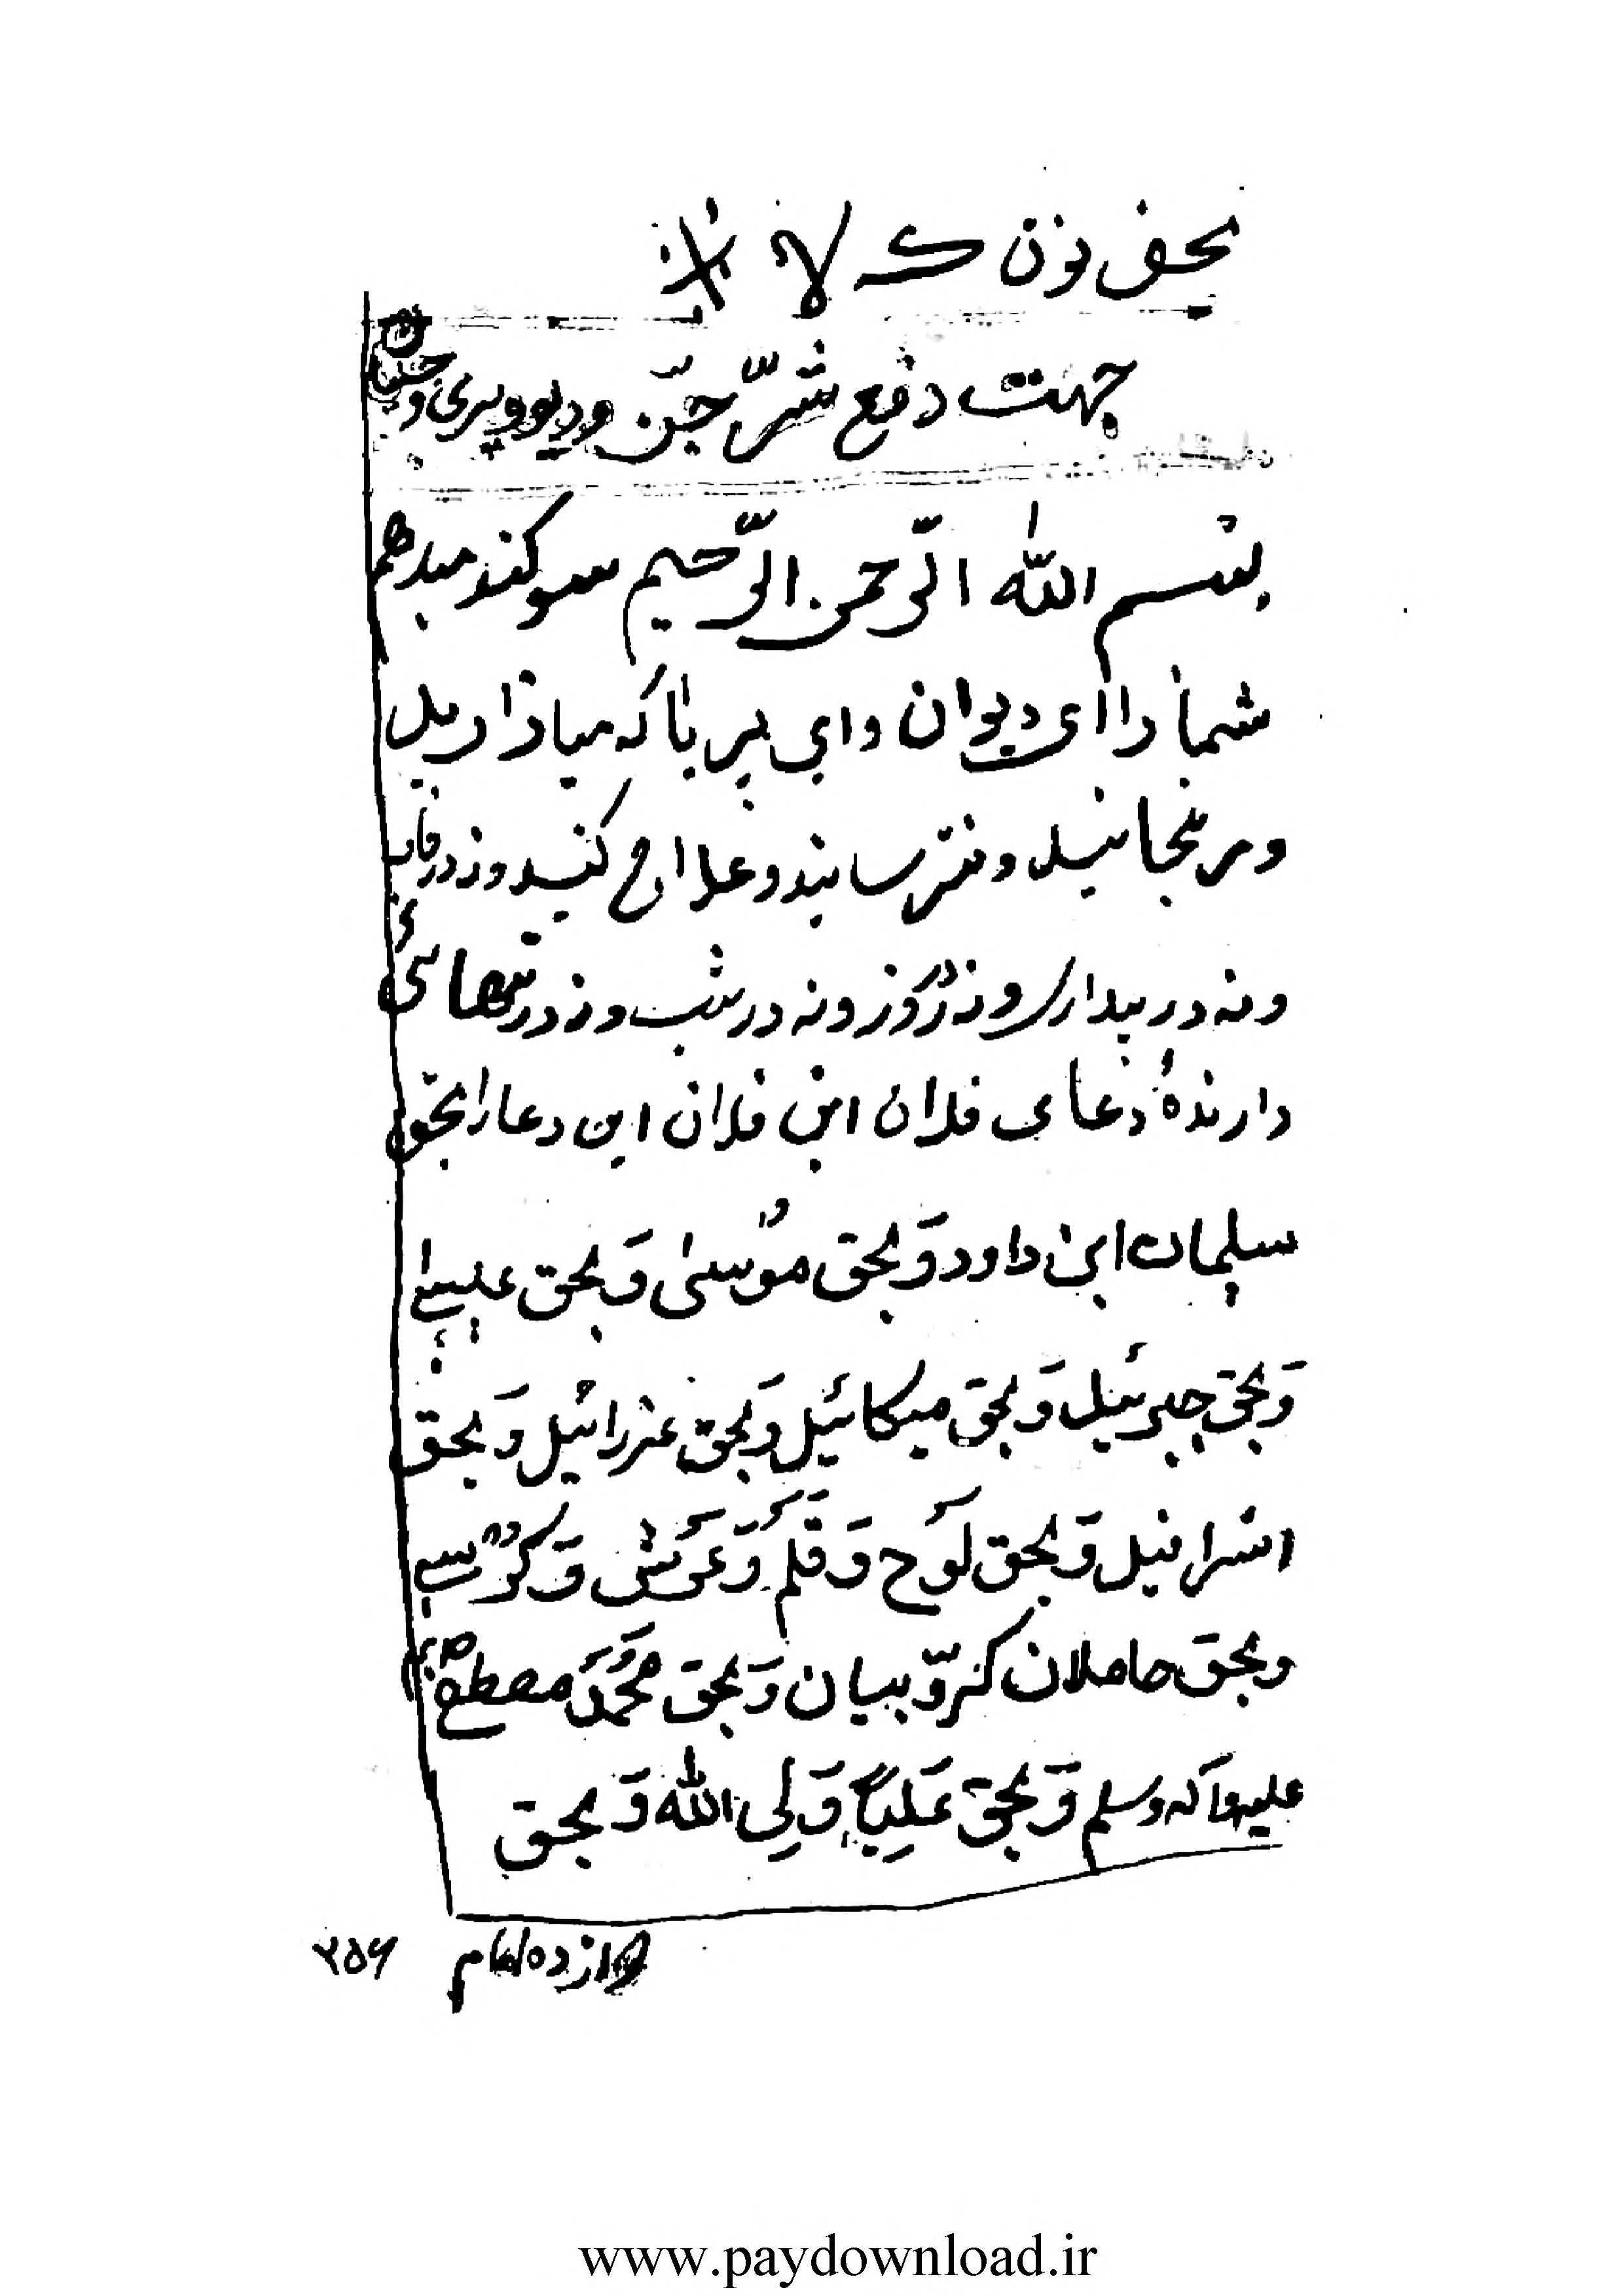 بحق نون ک لا
جهت دفع شرّ جنّ و دیو و پری و
بسم الله الرّحمن الرّحیم سوکند میدهم
شما را ای دیوان و ای پریان که میازارید
و مرنجانید و نترسانید و علاج کنید و نه در خاب
و نه در بیداری و نه در روز و نه در شب و نه در تنهائی
دارندهٔ دعای فلان ابن فلان این دعا را بحق
سلیمان ابن داود وَ بحق موُسیٰ وَ بحق عیسیٰ
وَ بحق جبرئیل وَ بحق میکائیل وَ بحق عزرائیل وَ بحق
اسرافیل وَ بحق لَوح وَ قَلَم وَ عَرَش وَ کُرسی
و بحق حاملان کرّوبیان وَ بحق مُحَمَّد مصطفی ص
علیه و آله و سلم وَ بحق عَلِیاً وَلِی الله وَ بحق
دوازده امام
۲۵۶
www.paydownload.ir